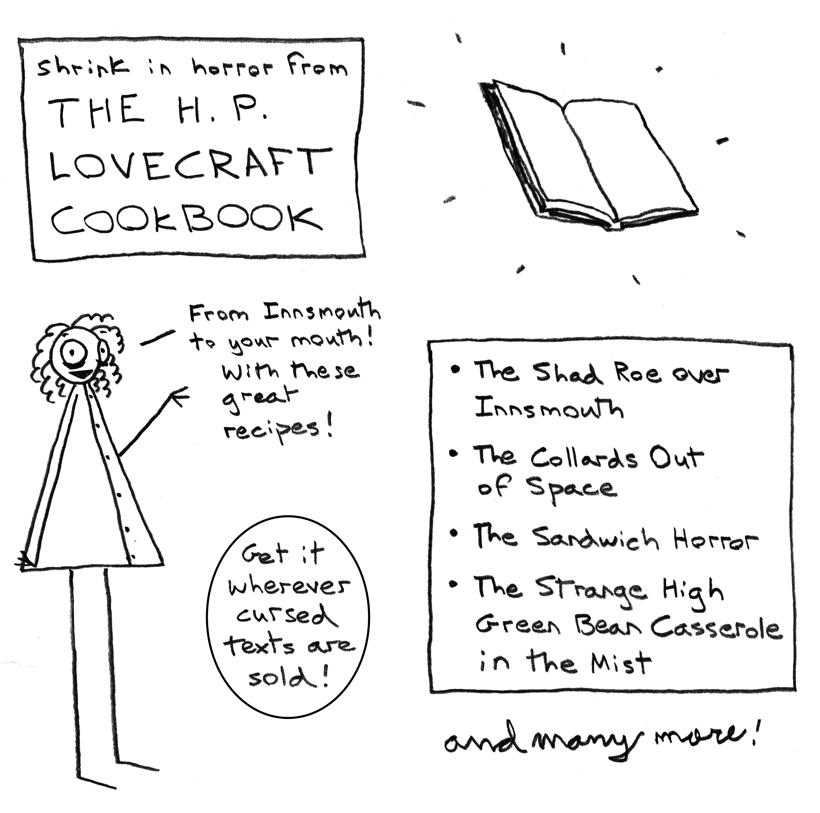 shrink in horror from
THE H. P.
LOVECRAFT
COOKBOOK
From Innsmouth
to your mouth!
With these
great
recipes!
Get it
wherever
cursed
texts are
sold!
• The Shad Roe over
Innsmouth
• The Collards Out
of Space
• The Sandwich Horror
• The Strange High
Green Bean Casserole
in the Mist
and many more!